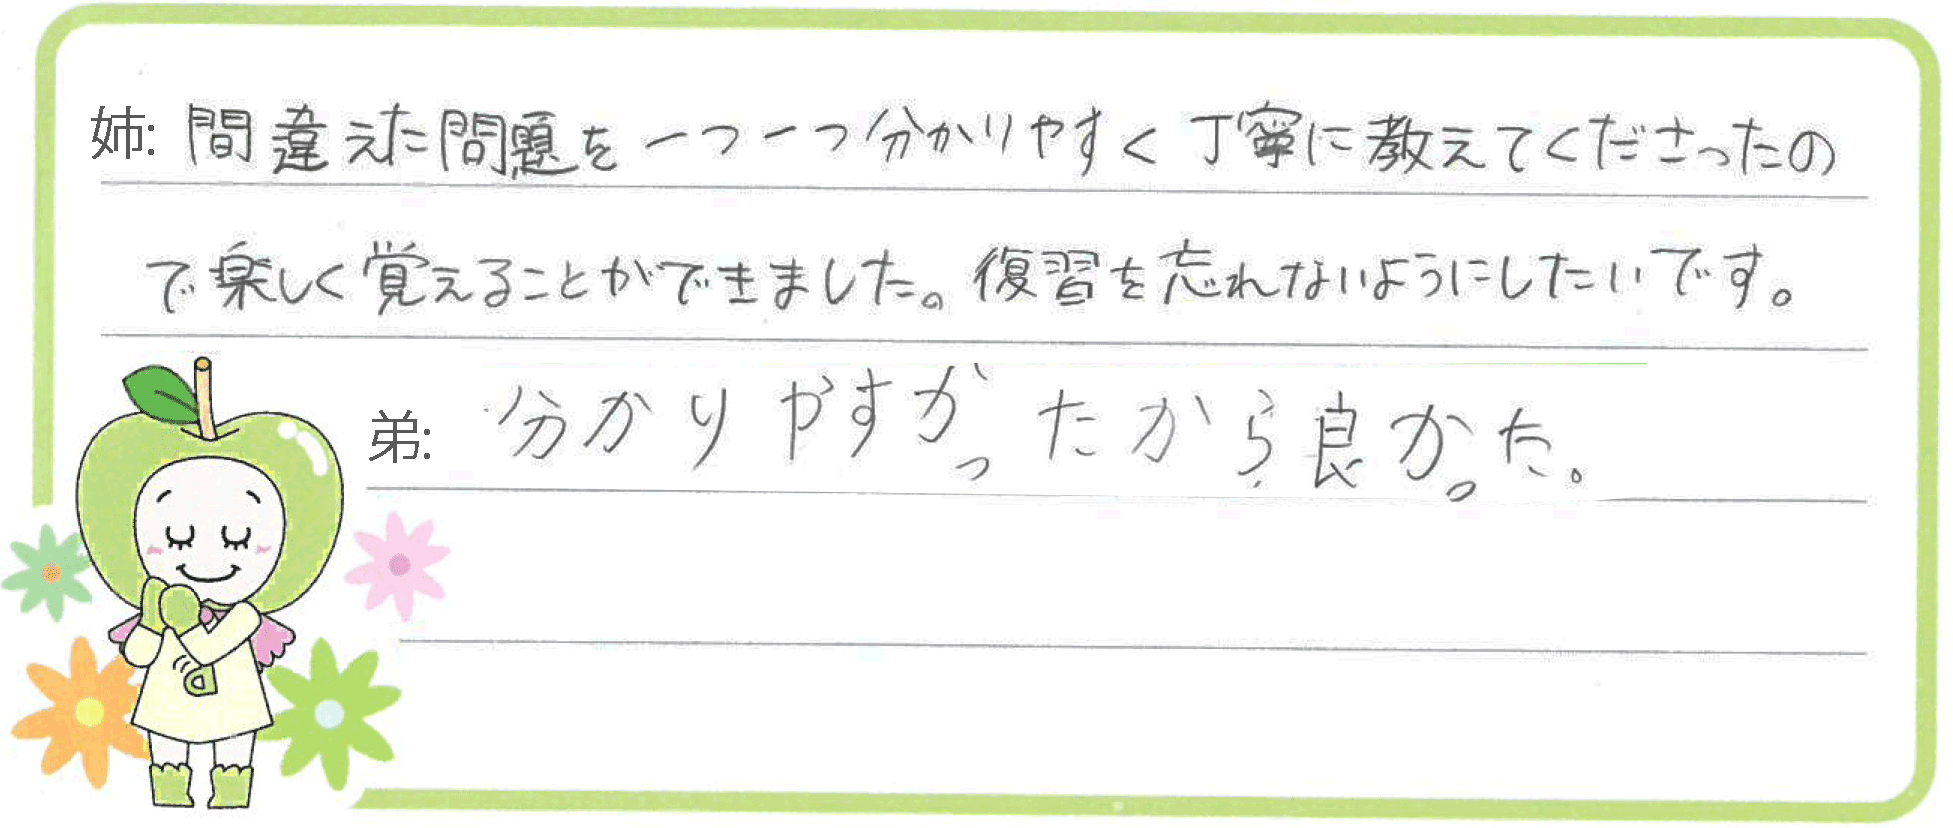 姉: 間違えた問題を一つ一つ分かりやすく丁寧に教えてくださったの
で楽しく覚えることができました。復習を忘れないようにしたいです。
弟: 分かりやすかったから良かった。